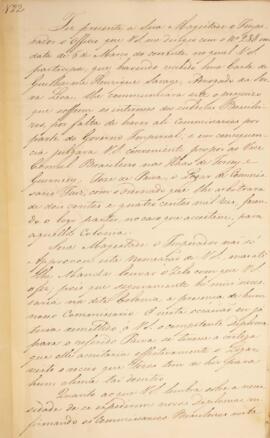 122
Fiz presente a Sua Magestade o Impe-
rador o officio que VSª me dirigio com o Nº
data de 6 de Março do corrente, no qual VSª
participa, que havendo recebido huma Carta de
Guilherme Henrique Savage, Advogado da Ser-
ra Leoa, lhe communicara este o prejuizo
que soffrem os interesses dos subditos Brasilei-
ros por falta de haver ali Commissarios por
parte do Governo Imperial, e em consequen-
cia julgava VSª conveniente propor ao Vice
Consul Brasileiro nas Ilhas de Jersey e
Guernsey, José de Paiva, o Lugar de Commis-
sario Juiz, com o ordenado que lhe arbitrara
de dous contos e quatro centos mil reis,
o logo partir, no caso que aceitasse, para
aquella Colonia.
Sua Magestade o Imperador não só
Approvou esta Nomeação de VSª, mas até
lhe Manda louvar o Zelo com que VSª
pois que seguramente he mui neces-
saria na dita Colonia a presença de hum
nosso Commissario. N'esta occasião eu ja
teria remettido a VSª o competente diploma
para o referido Paiva se tivesse a certeza
que elle aceitaria effectivamente o Lugar,
Quanto ao que VSª lembra sobre a neces-
sidade de se expedirem novos diplomas, con-
firmando os Commissarios Brasileiros